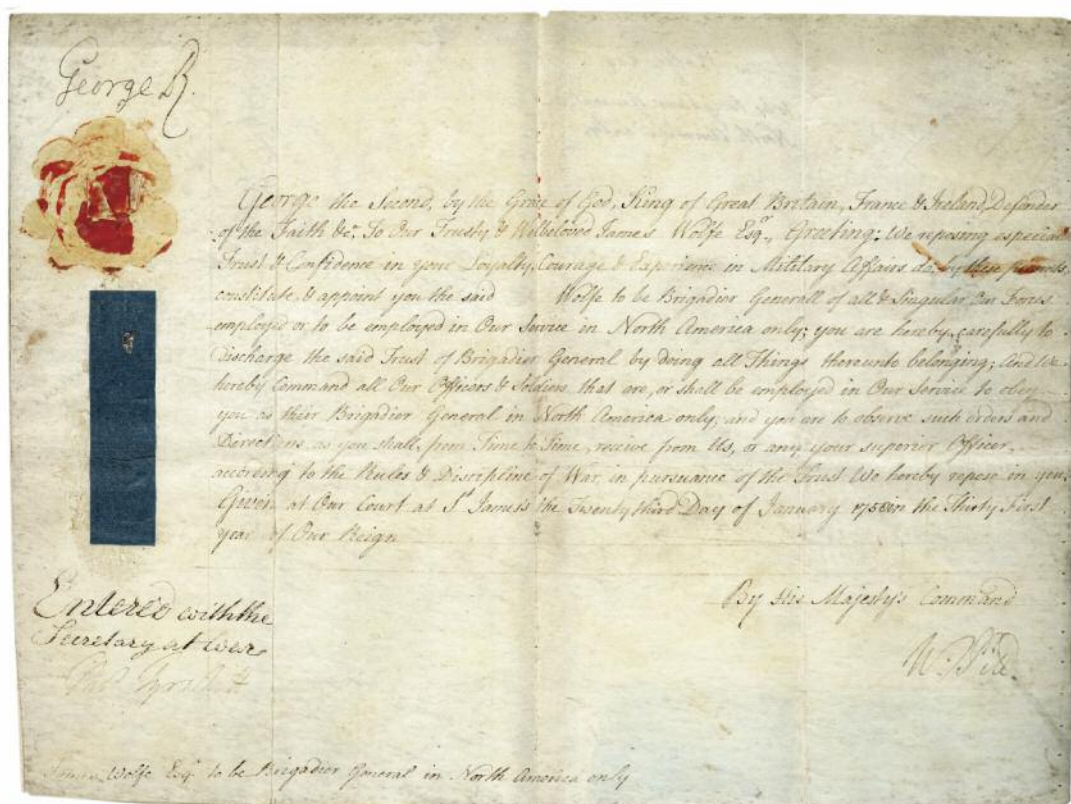 George R.
George the Second, by the Grace of God, King of Great Britain, France & Ireland, Defender
of the Faith &c. To Our Trusty & Welbeloved James Wolfe Esqr., Greeting: We reposing especial
Trust & Confidence in your Loyalty, Courage & Experience in Military Affairs, do, by these presents,
constitute & appoint you the said Wolfe to be Brigadier Generall of all & Singular Our Forces
employed or to be employed in Our Service in North America only; you are hereby, carefully to
Discharge the said Trust of Brigadier General by doing all Things thereunto belonging; And We
hereby Command all Our Officers & Soldiers that are, or shall be employed in Our Service to obey
you as their Brigadier General in North America only, and you are to observe such orders and
Directions, as you shall, from Time to Time, receive from Us, or any your superior Officer,
according to the Rules & Discipline of War, in pursuance of the Trust We hereby repose in you.
Given at Our Court at St. James's the Twenty third Day of January 1758 in the Thirty First
year of Our Reign
By His Majesty's Command
W. Pitt.
Entered with the
Secretary at War
James Wolfe Esqr. to be Brigadier General in North America only